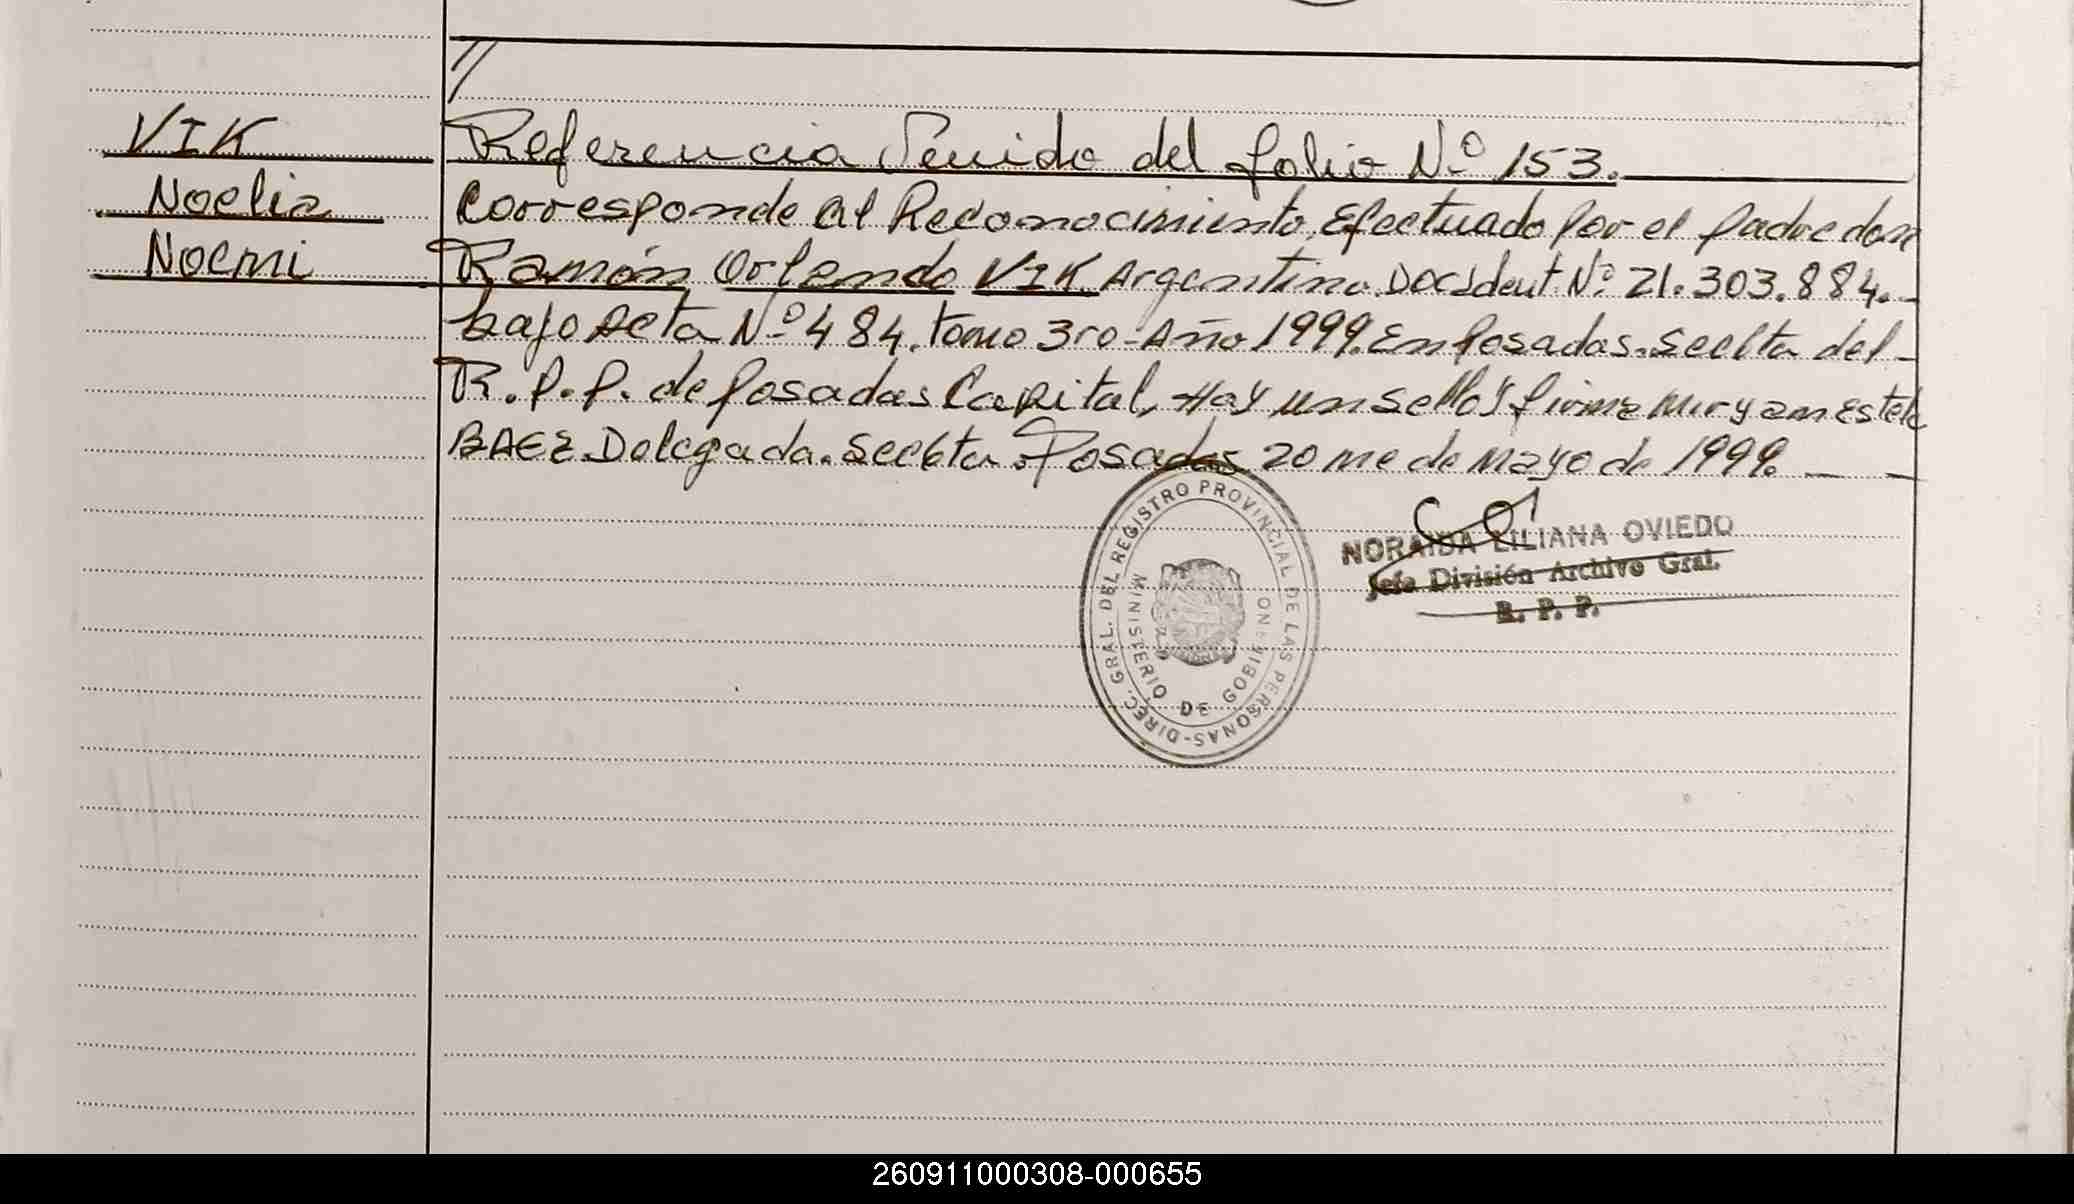 //
VIK
Noelia
Noemi
Referencia Venido del folio Nº 153.
Corresponde al Reconocimiento, Efectuado Por el Padre don
Ramón Orlando VIK. Argentino. Doc. Ident. Nº 21.303.884.-
bajo Acta Nº 484. tomo 3ro - Año 1999. En Posadas. Secc 6ta del -
R.P.P. de Posadas Capital, Hay un sello y firma Miryam Estela
BAEZ. Delegada. Secc 6ta. Posadas 20 de Mayo de 1999. — —
NORAIDA LILIANA OVIEDO
Jefa División Archivo Gral.
R. P. P.
DIREC. GRAL. DEL REGISTRO PROVINCIAL DE LAS PERSONAS-
MINISTERIO DE GOBIERNO
260911000308-000655